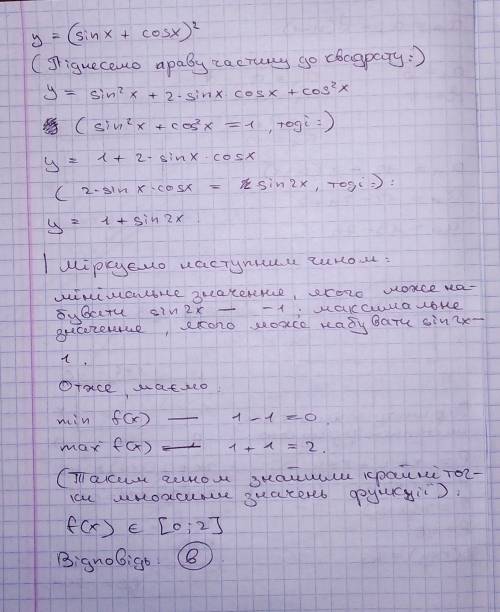 y = (sinx + cosx)²
(Піднесемо праву частину до квадрату:)
y = sin²x + 2·sinx·cosx + cos²x
(sin²x + cos²x = 1, тоді:)
y = 1 + 2·sinx·cosx
(2·sinx·cosx = sin2x, тоді:):
y = 1 + sin2x.
Міркуємо наступним чином:
мінімальне значення, якого може на-
бувати sin2x — -1; максимальне
значення, якого може набувати sin2x—
1.
Отже, маємо:
min f(x) — 1-1=0.
max f(x) — 1+1=2.
(Таким чином знайшли крайні точ-
ки множини значень функції):
f(x) ∈ [0;2]
Відповідь: в